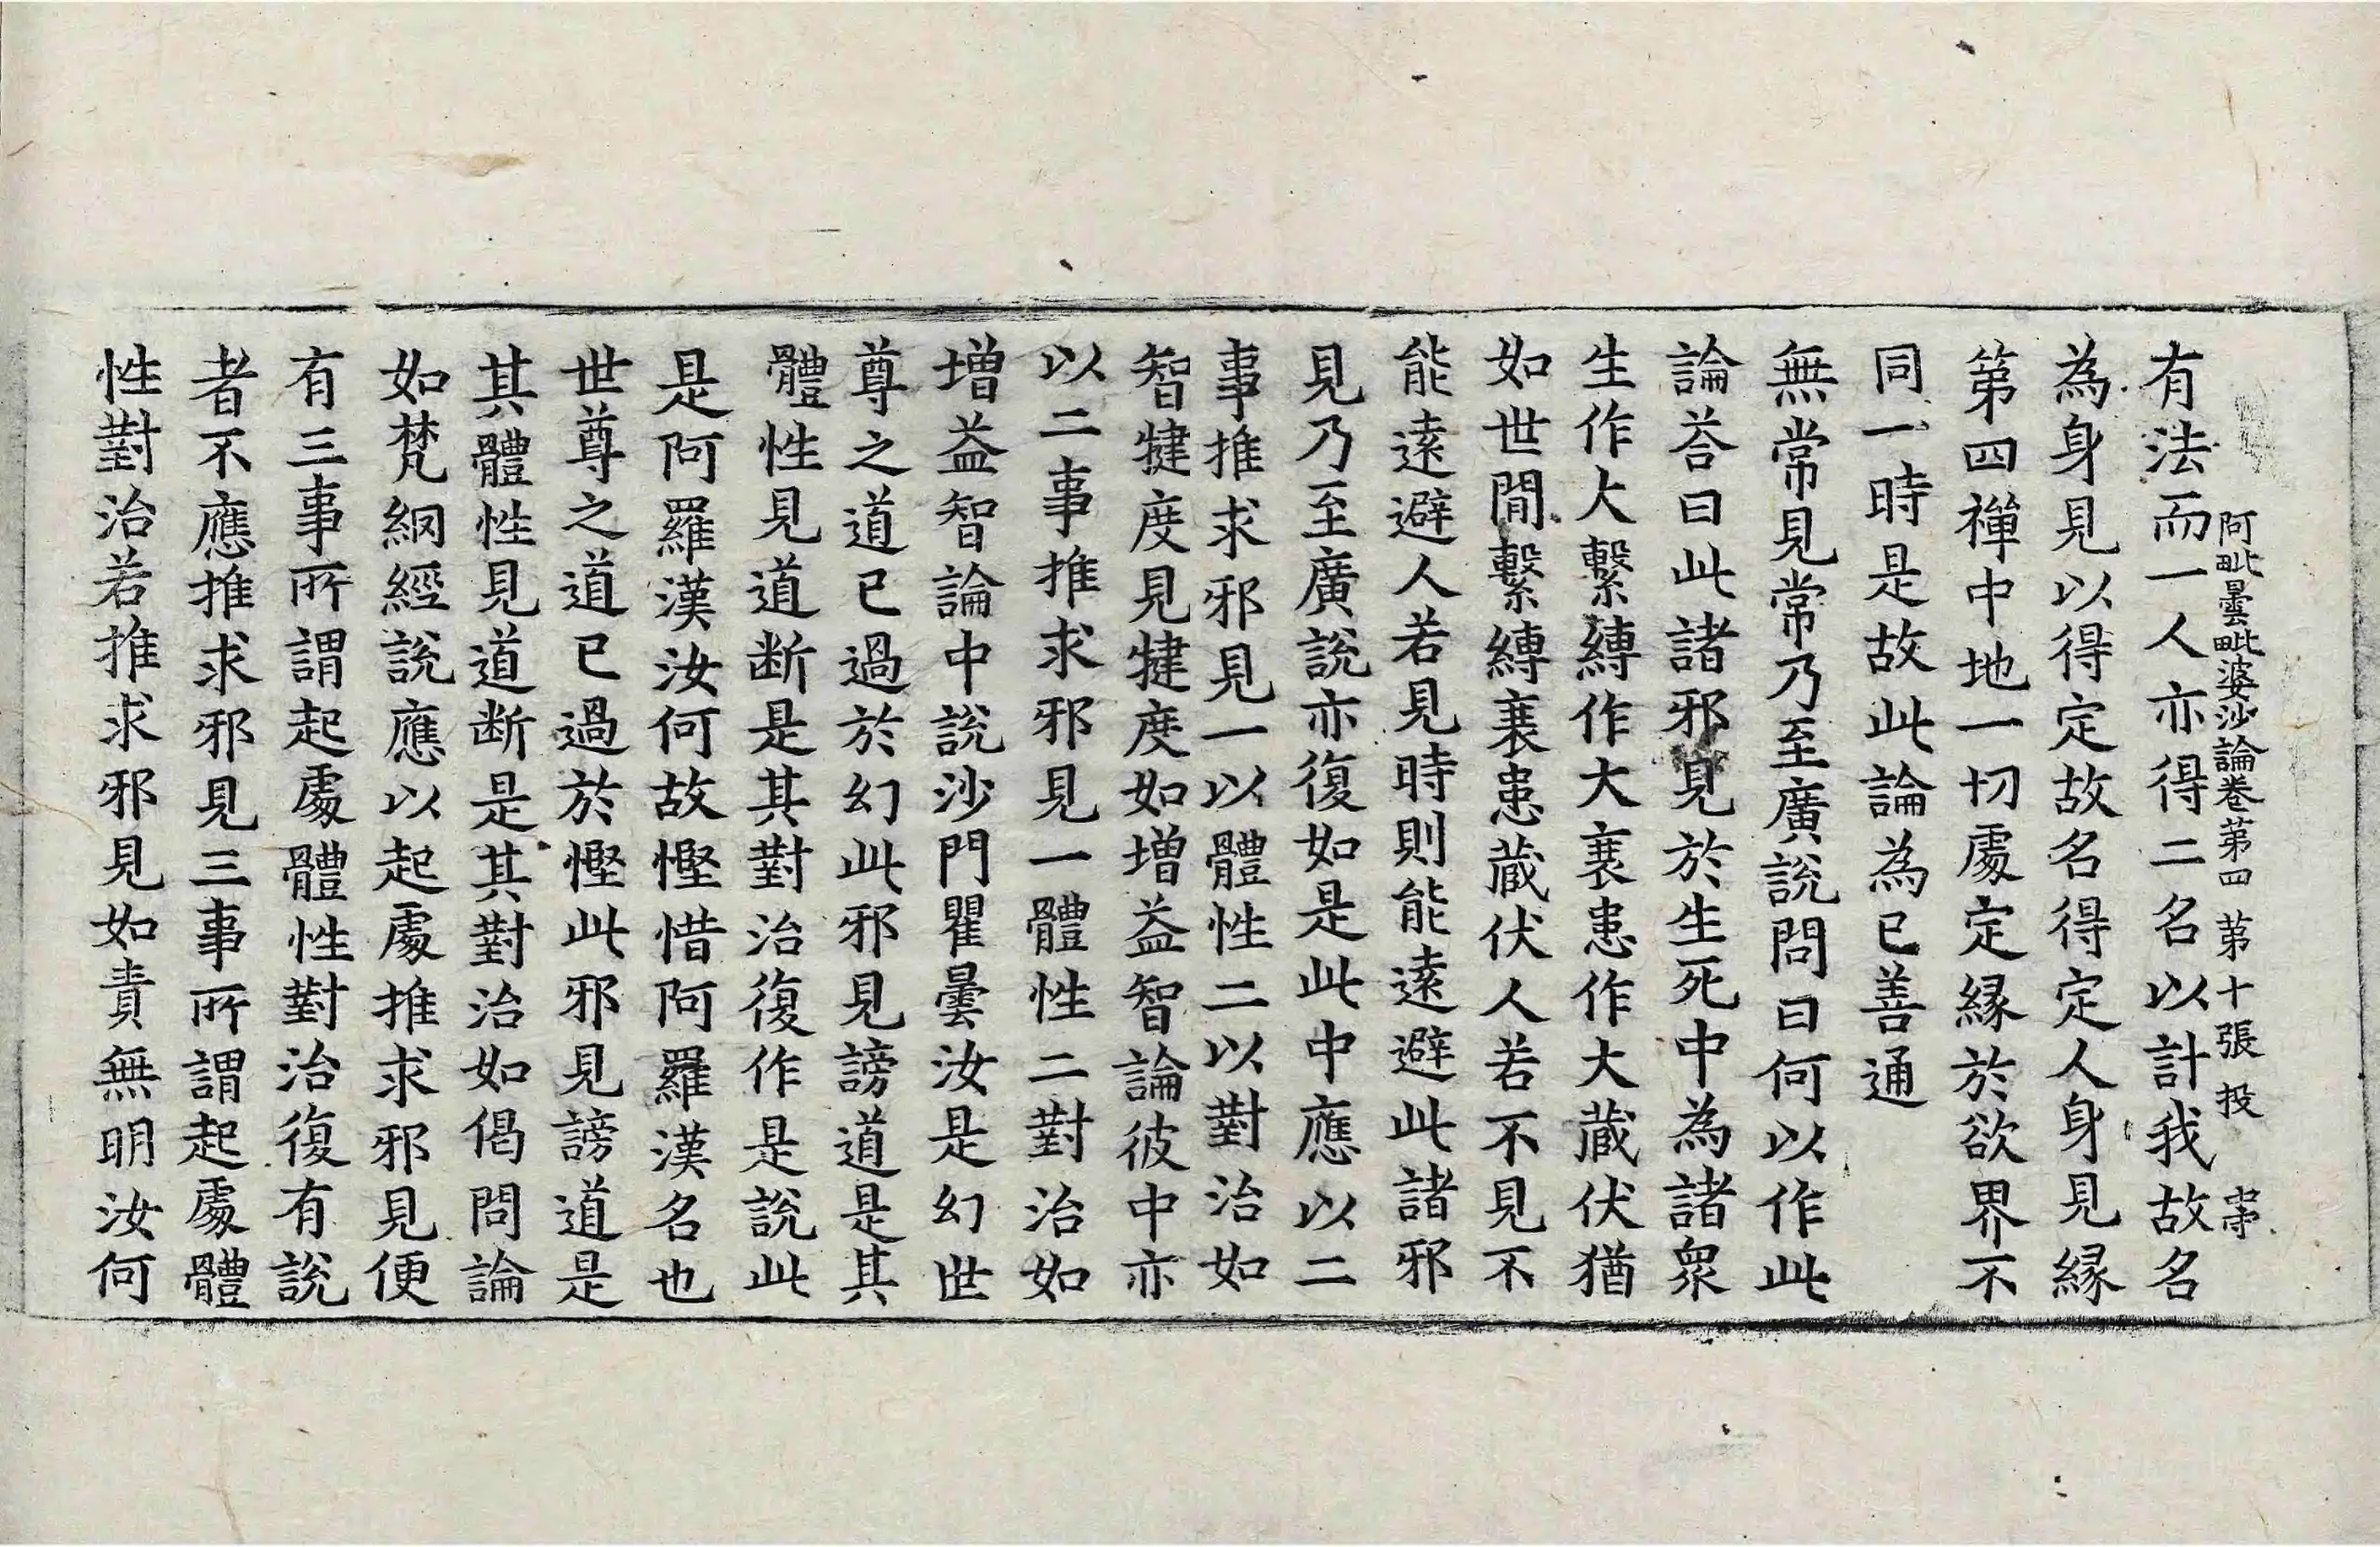 阿毗曇毗婆沙論卷第四 第十張 投 弗
有法而一人亦得二名以計我故名
為身見以得定故名得定人身見緣
第四禪中地一切處定緣於欲界不
同一時是故此論為已善通
無常見常乃至廣說問曰何以作此
論荅曰此諸邪見於生死中為諸衆
生作大繫縛作大衰患作大藏伏猶
如世間繫縛衰患藏伏人若不見不
能遠避人若見時則能遠避此諸邪
見乃至廣說亦復如是此中應以二
事推求邪見一以體性二以對治如
智揵度見揵度如增益智論彼中亦
以二事推求邪見一體性二對治如
增益智論中說沙門瞿曇汝是幻世
尊之道已過於幻此邪見謗道是其
體性見道断是其對治復作是說此
是阿羅漢汝何故慳惜阿羅漢名也
世尊之道已過於慳此邪見謗道是
其體性見道断是其對治如偈問論
如梵網經說應以起處推求邪見便
有三事所謂起處體性對治復有說
者不應推求邪見三事所謂起處體
性對治若推求邪見如責無明汝何